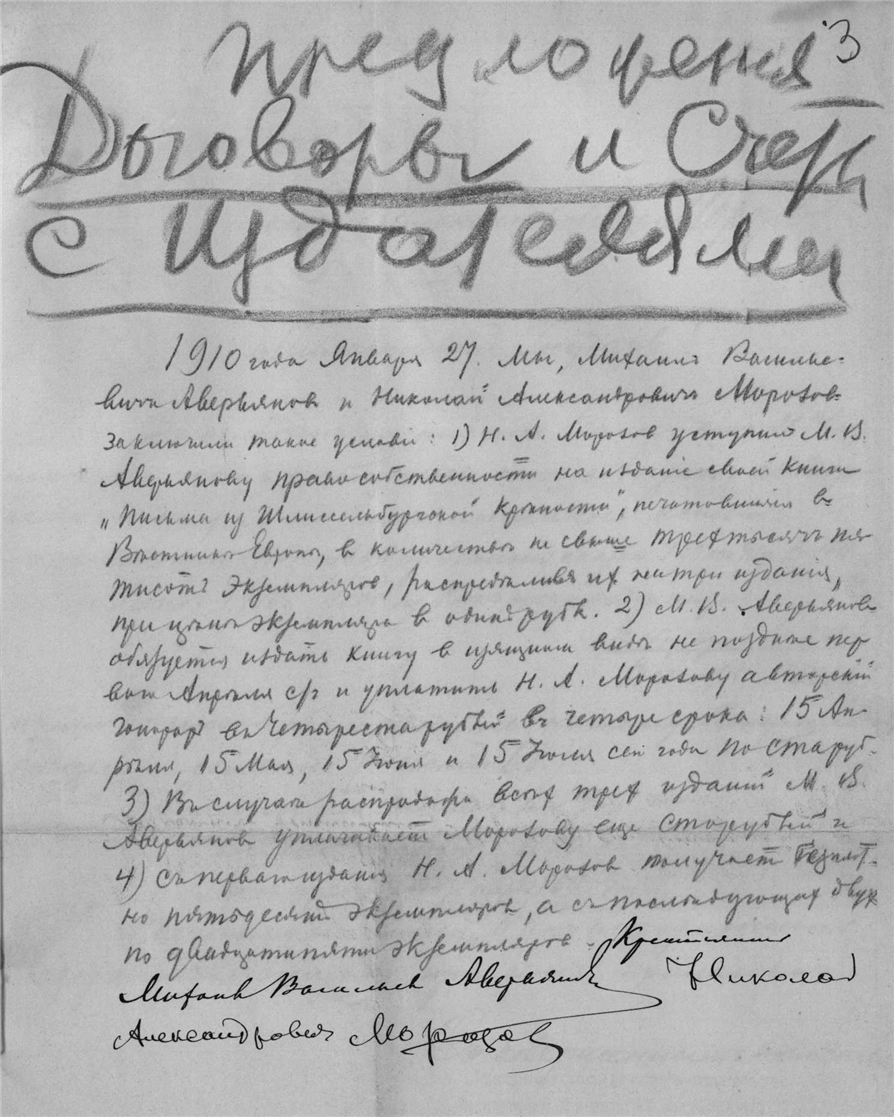 3
предложения
Договоры и Счеты
с Издателями
1910 года Января 27. Мы, Михаилъ Василье-
вичъ Аверьяновъ и Николай Александровичъ Морозовъ
заключили такое условіе: 1) Н. А. Морозов уступил М. В.
Аверьянову право собственности на изданіе своей книги
„Письма из Шлиссельбургской крѣпости“, печатавшіяся въ
Вѣстникѣ Европы, в количествѣ не свыше трехъ тысячъ пя-
тисотъ экземпляров, распредѣливъ их на три изданія,
при цѣнѣ экземпляра в один рубль. 2) М. В. Аверьяновъ
обязуется издать книгу в изящном видѣ не позднѣе пер
ваго Апрѣля с/г и уплатить Н. А. Морозову авторскій
гонорар въ четыреста рублей въ четыре срока: 15 Ап-
рѣля, 15 Мая, 15 Іюня и 15 Іюля сего года по сту руб.
3) Въ случаѣ распродажи всѣх трех изданій М. В.
Аверьянов уплачивает Морозову еще сто рублей и
4) съ перваго изданія Н. А. Морозов получает безплат-
но пятьдесят экземпляров, а съ послѣдующих двух
по двадцати пяти экземпляров. Крестьянин
Михаил Васильев Аверьянов Николай
Александровичъ Морозов